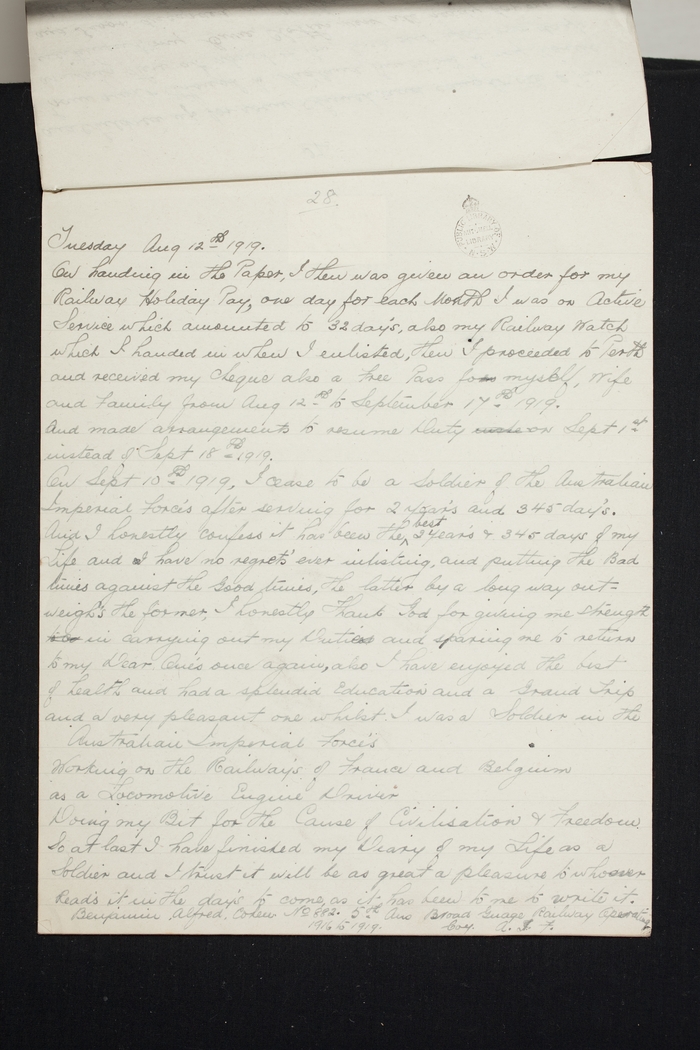 28.
Tuesday Aug 12th 1919.
On handing in the Paper, I then was given an order for my
Railway Holiday Pay, one day for each Month I was on Active
Service which amounted to 32 day's, also my Railway Watch
which I handed in when I enlisted, then I proceeded to Perth
and received my Cheque also a Free Pass for myself, Wife
and Family from Aug 12th to September 17th 1919.
And made arrangements to resume Duty on Sept 1st
instead of Sept 18th 1919.
On Sept 10th 1919, I cease to be a Soldier of the Australian
Imperial Force's after serving for 2 year's and 345 day's.
And I honestly confess it has been the best 2 year's & 345 days of my
Life and I have no regret's ever inlisting, and putting the Bad
times against the Good times, the latter by a long way out=
weigh's the former, I honestly Thank God for giving me strength
in carrying out my Duties and sparing me to return
to my Dear One's once again, also I have enjoyed the best
of health and had a splendid Education and a Grand Trip
and a very pleasant one whilst I was a Soldier in the
Australian Imperial Force's
Working on the Railway's of France and Belgium
as a Locomotive Engine Driver
Doing my Bit for the Cause of Civilisation & Freedom.
So at last I have finished my Diary of my Life as a
Soldier and I trust it will be as great a pleasure to whoever
Read's it in the day's to come, as it has been to me to write it.
Benjamin Alfred, Cohen No 882. 5th Aus Broad Guage Railway Operating
1916 to 1919. Coy. A.I.F.